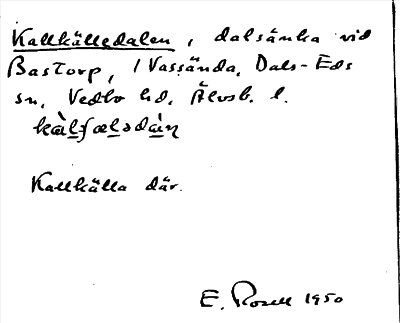 Kallkälledalen, dalsänka vid
Bastorp, / Vassända, Dals-Eds
sn, Vedbo hd, Älvsb. l.
Kallkälla där.
E. Rosell 1950